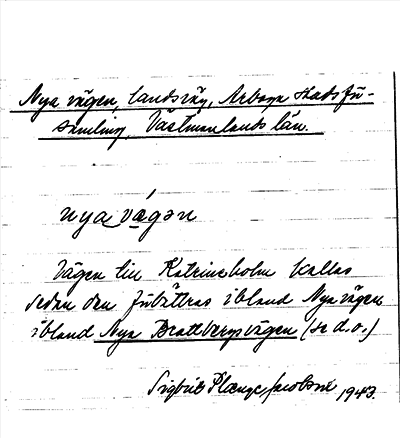 Nya vägen, landsväg, Arboga stadsför-
samling, Västmanlands län.
nya vǽgən
Vägen till Katrineholm kallas
sedan den förbättras ibland Nya vägen
ibland Nya Brattbergsvägen (se d.o.)
Sigbrit Plænge Jacobson 1943.